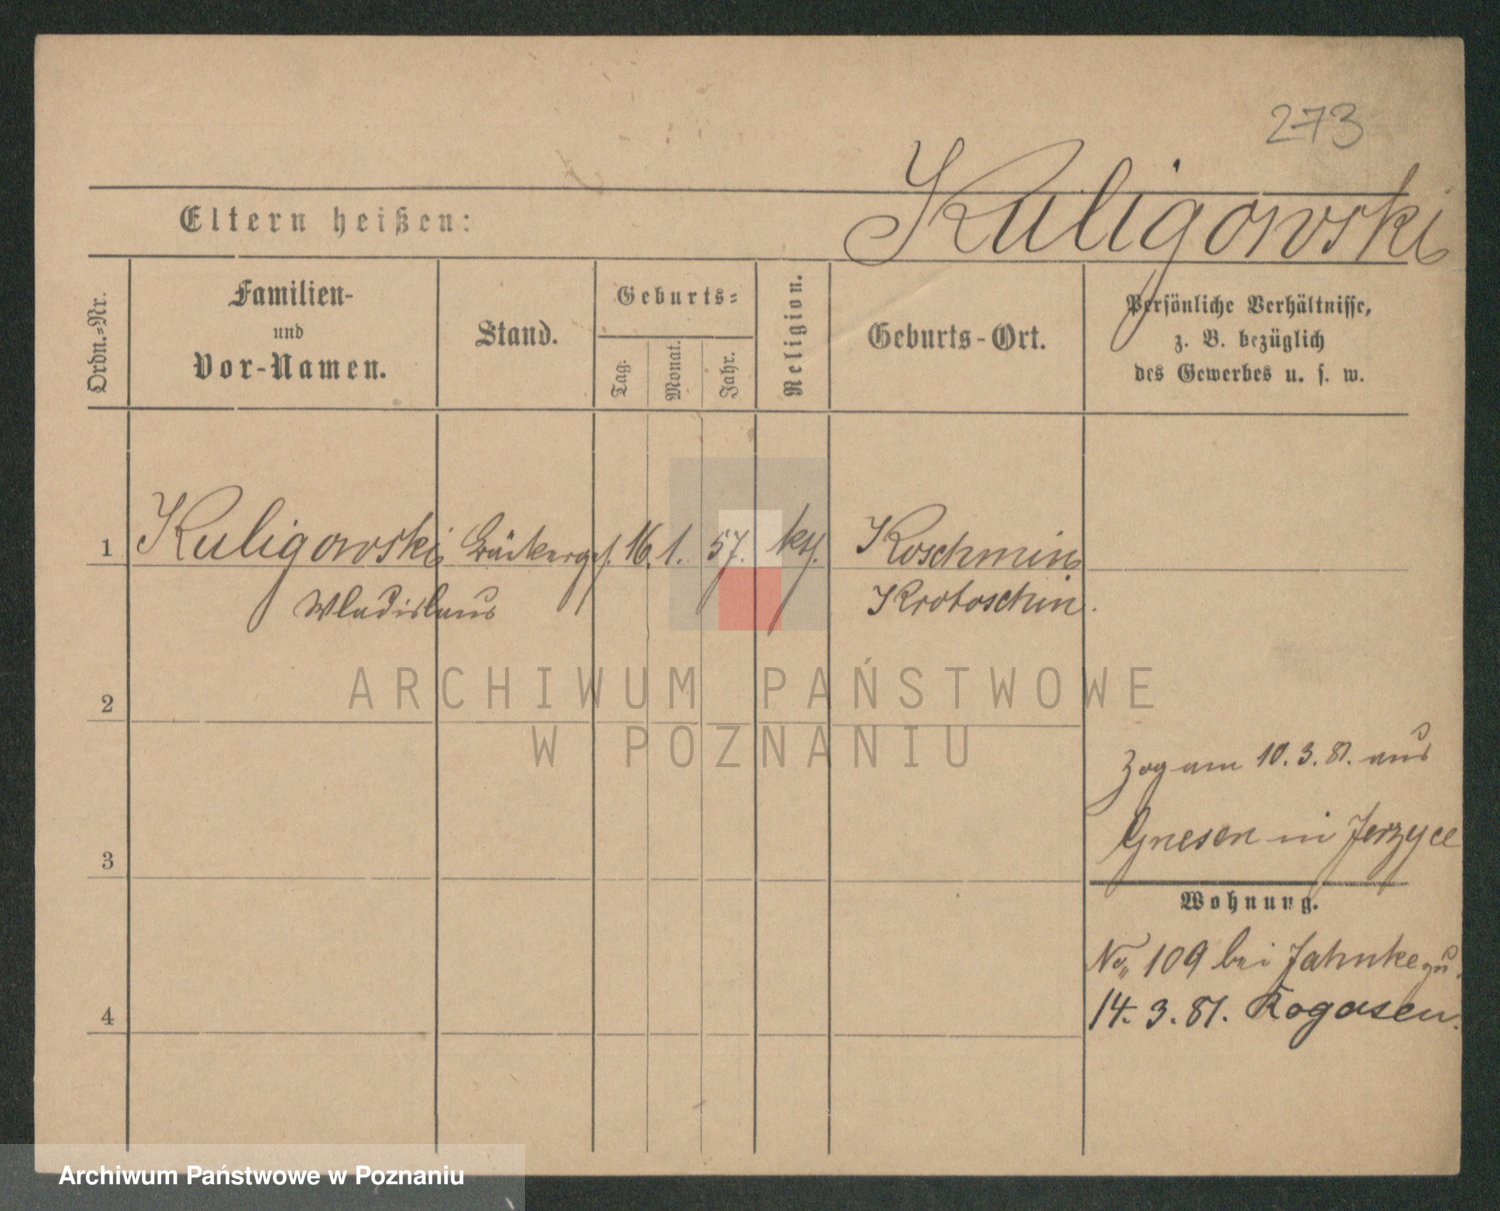 273
Kuligowski
Eltern heißen:
Ordn.-Nr.
Familien-
und
Vor-Namen.
Stand.
Geburts-
Tag.
Monat.
Jahr.
Religion.
Geburts-Ort.
Persönliche Verhältnisse,
z. B. bezüglich
des Gewerbes u. s. w.
1 Kuligowski Bäckerges. 16. 1. 57. kth. Koschmin
Wladislaus Krotoschin.
ARCHIWUM PAŃSTWOWE
2
W POZNANIU
Zog am 10. 3. 81. aus
Gnesen in Jerzyce
3
Wohnung.
No 109 bei Jahnke
4 14. 3. 81. Rogasen.
Archiwum Państwowe w Poznaniu